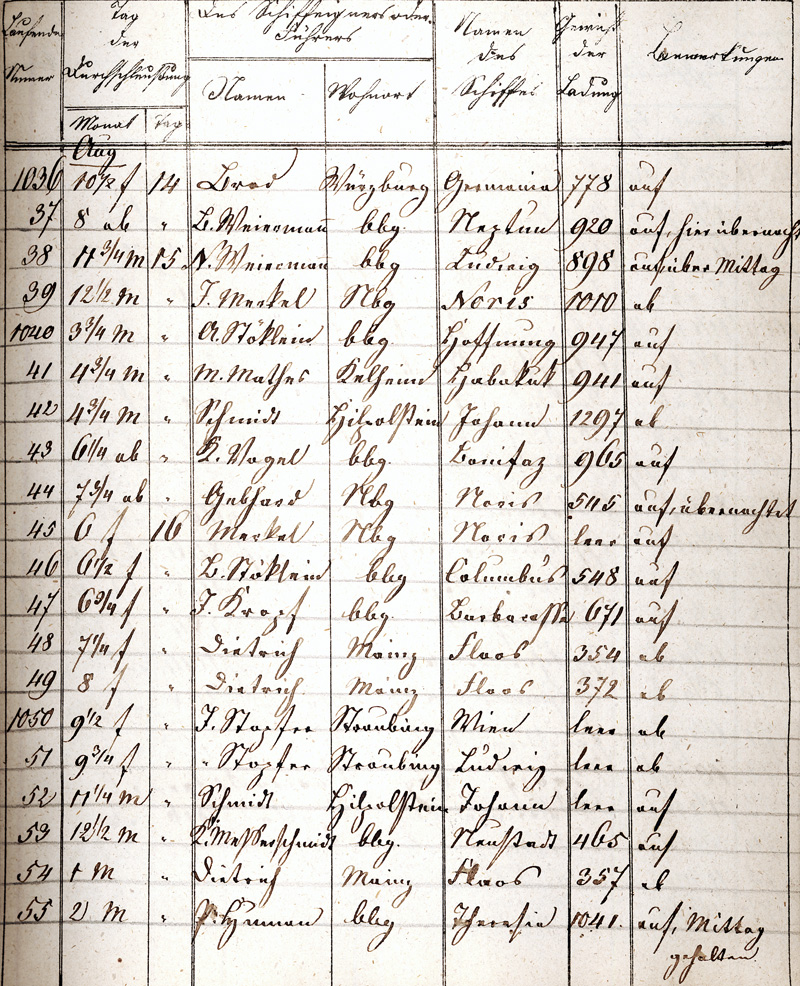 Laufende Numer | Tag der Durchschleußung | Des Schiffeigners oder Führers | Namen des Schiffes | Gewicht der Ladung | Bemerkungen
Monat | Tag | Namen | Wohnort
Aug
1036 | 10 1/2 f | 14 | Brod | Würzburg | Germania | 778 | auf
37 | 8 ab | " | B. Weiermañ | bbg. | Neptun | 920 | auf, hier übernacht
38 | 11 3/4 m | 15. | N. Weierman | bbg | Ludwig | 898 | auf über Mittag
39 | 12 1/2 m | " | J. Merkel | Nbg | Noris | 1010 | ab
1040 | 3 3/4 m | " | A. Stöklein | bbg. | Hoffnung | 947 | auf
41 | 4 3/4 m | " | M. Mathes | Kelheim | Habakuk | 941 | auf
42 | 4 3/4 m | " | Schmidt | Hilpolstein | Johann | 1297 | ab
43 | 6 1/4 ab | " | K. Vogel | bbg. | Bonifaz | 965 | auf
44 | 7 3/4 ab | " | Gebhard | Nbg | Noris | 545 | auf, übernachtet
45 | 6 f | 16 | Merkel | Nbg | Noris | leer | auf
46 | 6 1/2 f | " | B. Stöklein | bbg | Columbus | 548 | auf
47 | 6 3/4 f | " | J. Kropf | bbg. | Barbarossa | 671 | auf
48 | 7 1/4 f | " | Dietrich | Mainz | Floos | 354 | ab
49 | 8 f | " | Dietrich | Mainz | Floos | 372 | ab
1050 | 9 1/2 f | " | J. Stopfer | Straubing | Wien | leer | ab
51 | 9 3/4 f | " | " Stopfer | Straubing | Ludwig | leer | ab
52 | 11 1/4 m | " | Schmidt | Hilpolstein | Johann | leer | auf
53 | 12 1/2 m | " | K. Messerschmidt | bbg. | Neustadt | 465 | auf
54 | 1 m | " | Dietrich | Mainz | Floos | 357 | ab
55 | 2 m | " | bbg | Theresia | 1041. | auf, Mittag
gehalten